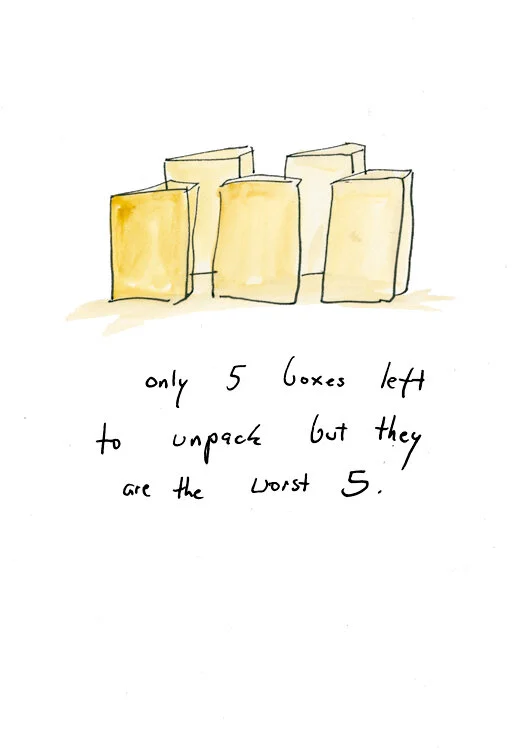 only 5 boxes left
to unpack but they
are the worst 5.